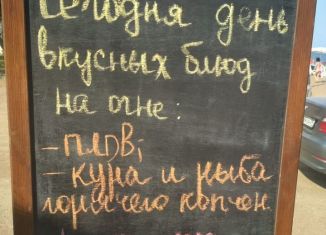 Сегодня день
вкусных блюд
на огне:
- плов;
- кура и рыба
горячего копчен.